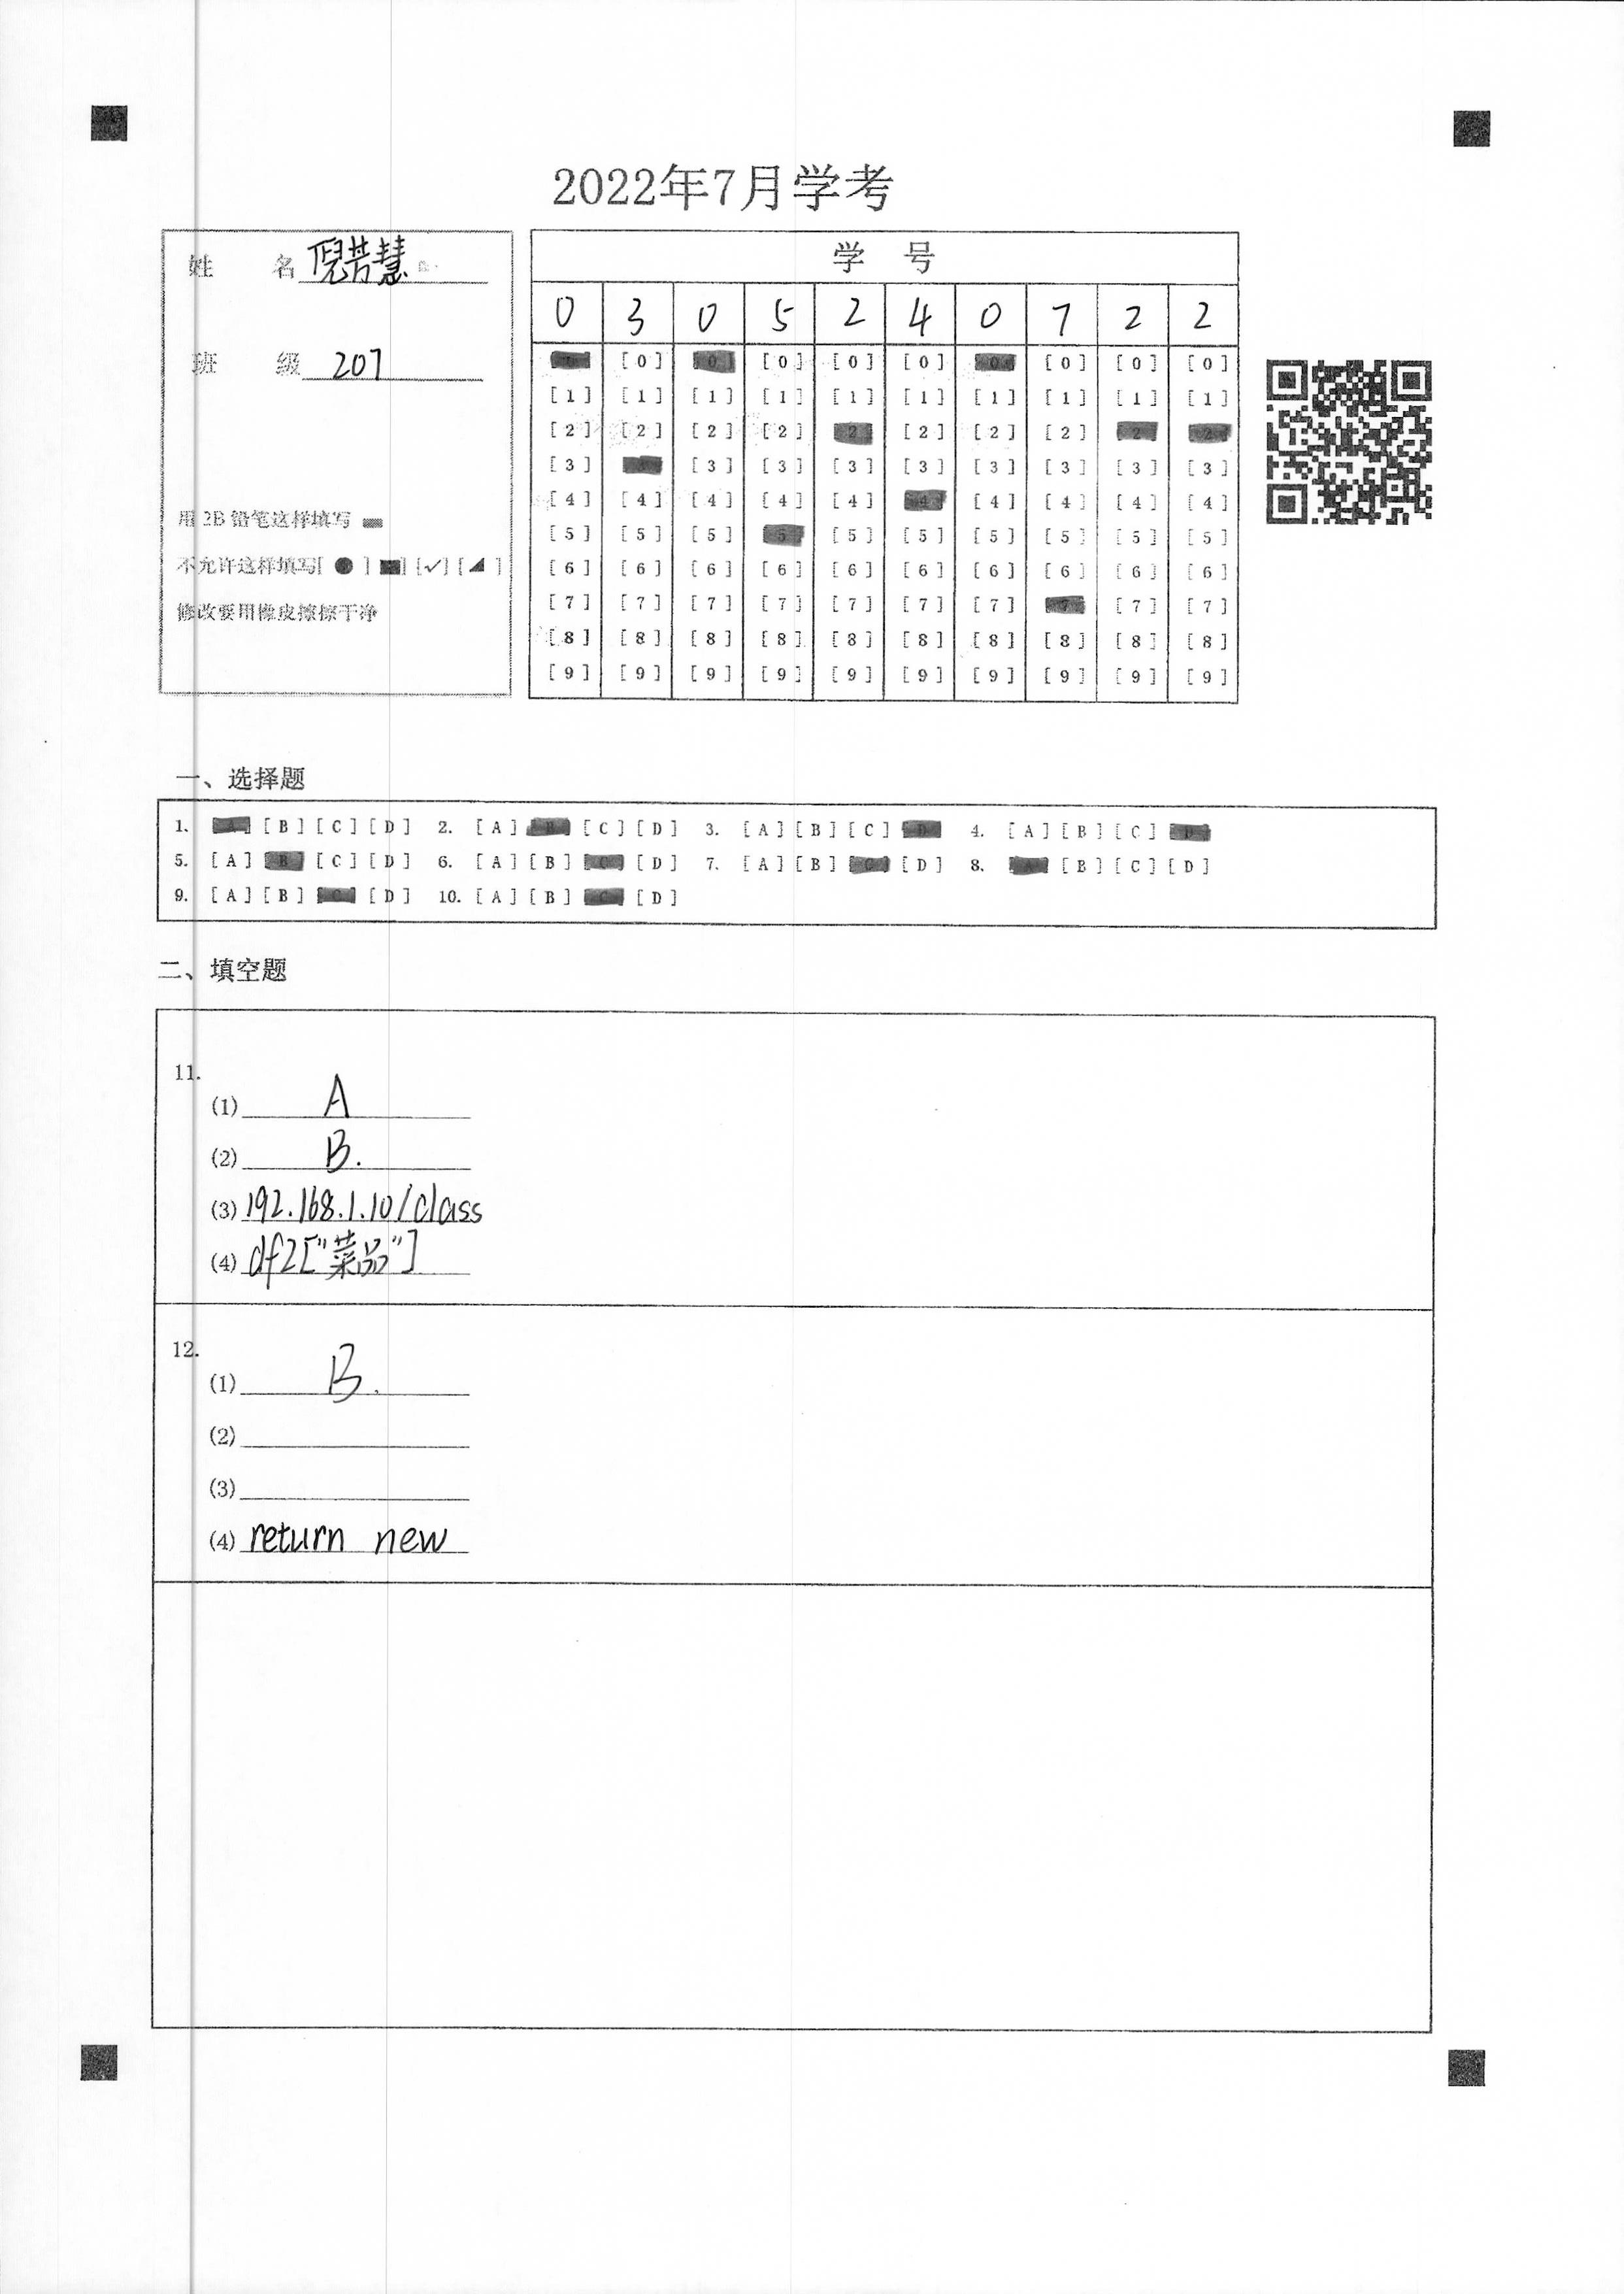 2022年7月学考
姓 名 倪芳慧
班 级 207
用2B铅笔这样填写
不允许这样填写[●] [■] [✓] [◢]
修改要用橡皮擦擦干净
学 号
0 3 0 5 2 4 0 7 2 2
[0] [0] [0] [0] [0] [0] [0] [0] [0] [0]
[1] [1] [1] [1] [1] [1] [1] [1] [1] [1]
[2] [2] [2] [2] [2] [2] [2] [2] [2] [2]
[3] [3] [3] [3] [3] [3] [3] [3] [3] [3]
[4] [4] [4] [4] [4] [4] [4] [4] [4] [4]
[5] [5] [5] [5] [5] [5] [5] [5] [5] [5]
[6] [6] [6] [6] [6] [6] [6] [6] [6] [6]
[7] [7] [7] [7] [7] [7] [7] [7] [7] [7]
[8] [8] [8] [8] [8] [8] [8] [8] [8] [8]
[9] [9] [9] [9] [9] [9] [9] [9] [9] [9]
一、选择题
1. [A] [B] [C] [D] 2. [A] [B] [C] [D] 3. [A] [B] [C] [D] 4. [A] [B] [C] [D]
5. [A] [B] [C] [D] 6. [A] [B] [C] [D] 7. [A] [B] [C] [D] 8. [A] [B] [C] [D]
9. [A] [B] [C] [D] 10. [A] [B] [C] [D]
二、填空题
11.
(1) A
(2) B.
(3) 192.168.1.10/class
(4) df2["菜品"]
12.
(1) B.
(2)
(3)
(4) return new